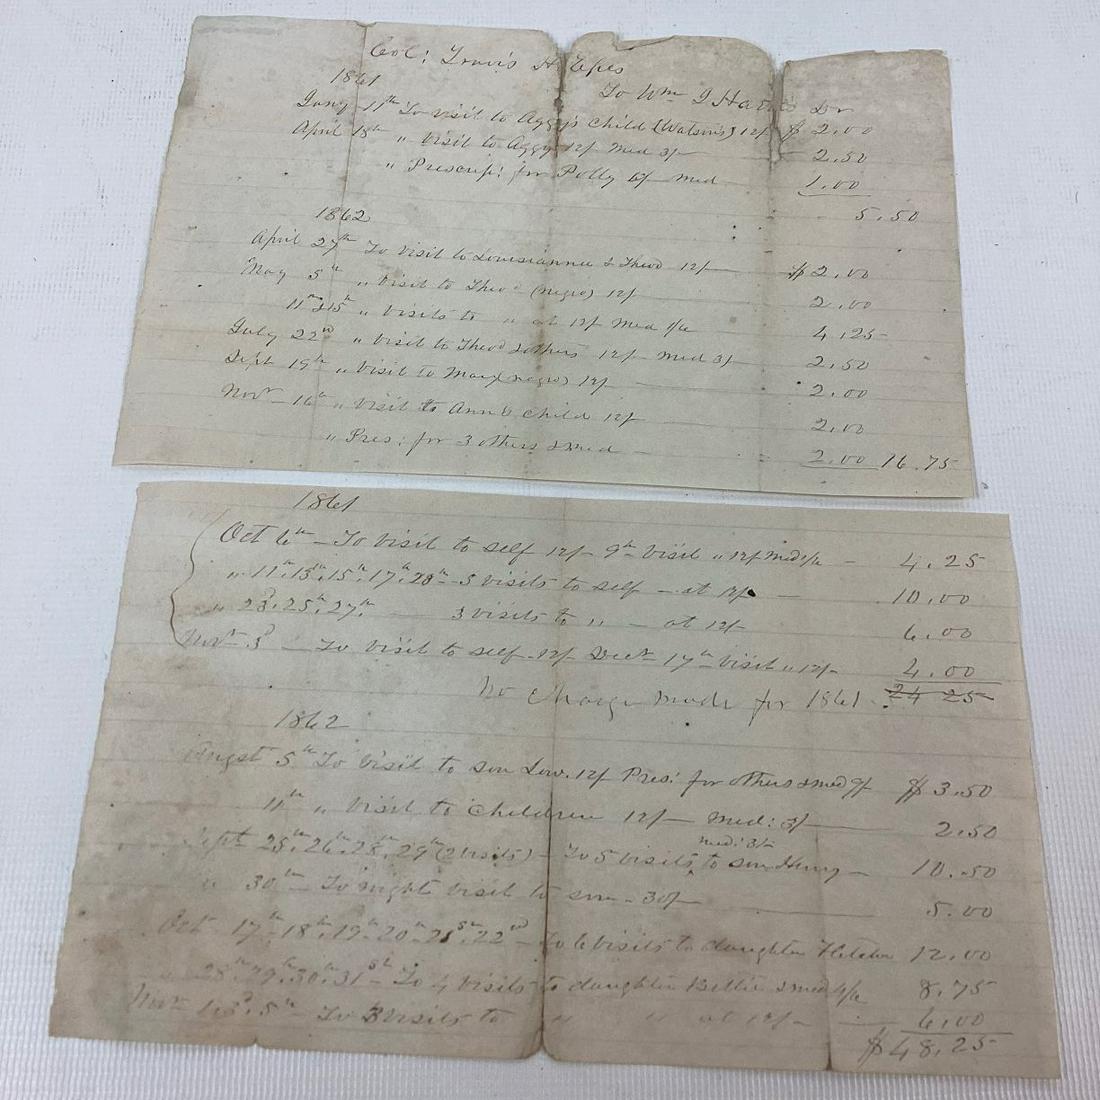 Col: Travis H Epes
To Wm J Harris Dr
1861
Jany 11th To visit to Aggy's Child (Watson's) 12/ $ 2.00
April 18th " visit to Aggy 12/ Med 3/ 2.50
" Prescrip: for Polly 6/ Med 1.00
5.50
1862
April 27th To visit to Louisianna & Theod 12/ $ 2.00
May 5th " visit to Theod (negro) 12/ 2.00
11th & 15th " visits to " at 12/ Med 4.25
July 22nd " visit to Theod & others 12/ Med 3/ 2.50
Sept 19th " visit to Mary (negro) 12/ 2.00
Novr 16th " visit to Ann's Child 12/ 2.00
" Pres: for 3 others & med 2.00 16.75
1861
Oct 6th To visit to self 12/ 9th visit " 12/ Med 4.25
" 11th 13th 15th 17th 20th 5 visits to self at 12/ 10.00
" 23d 25th 27th 3 visits to " at 12/ 6.00
Novr 3d To visit to self 12/ Decr 17th visit " 12/ 4.00
No Charge made for 1861 24 25
1862
August 5th To visit to son Low. 12/ Pres: for others & med 9/ $ 3.50
11th " visit to Children 12/ Med: 3/ 2.50
Sept 25th 26th 28th 29th (2 visits) To 5 visits med: 3/ to son Henry 10.50
" 30th To night visit to son 30/ 5.00
Oct 17th 18th 19th 20th 21st 22nd To 6 visits to daughter Fletcher 12.00
" 28th 29th 30th 31st To 4 visits to daughter Bettie & med 8.75
Novr 1st 3d 5th To 3 visits to " " at 12/ 6.00
$ 48.25